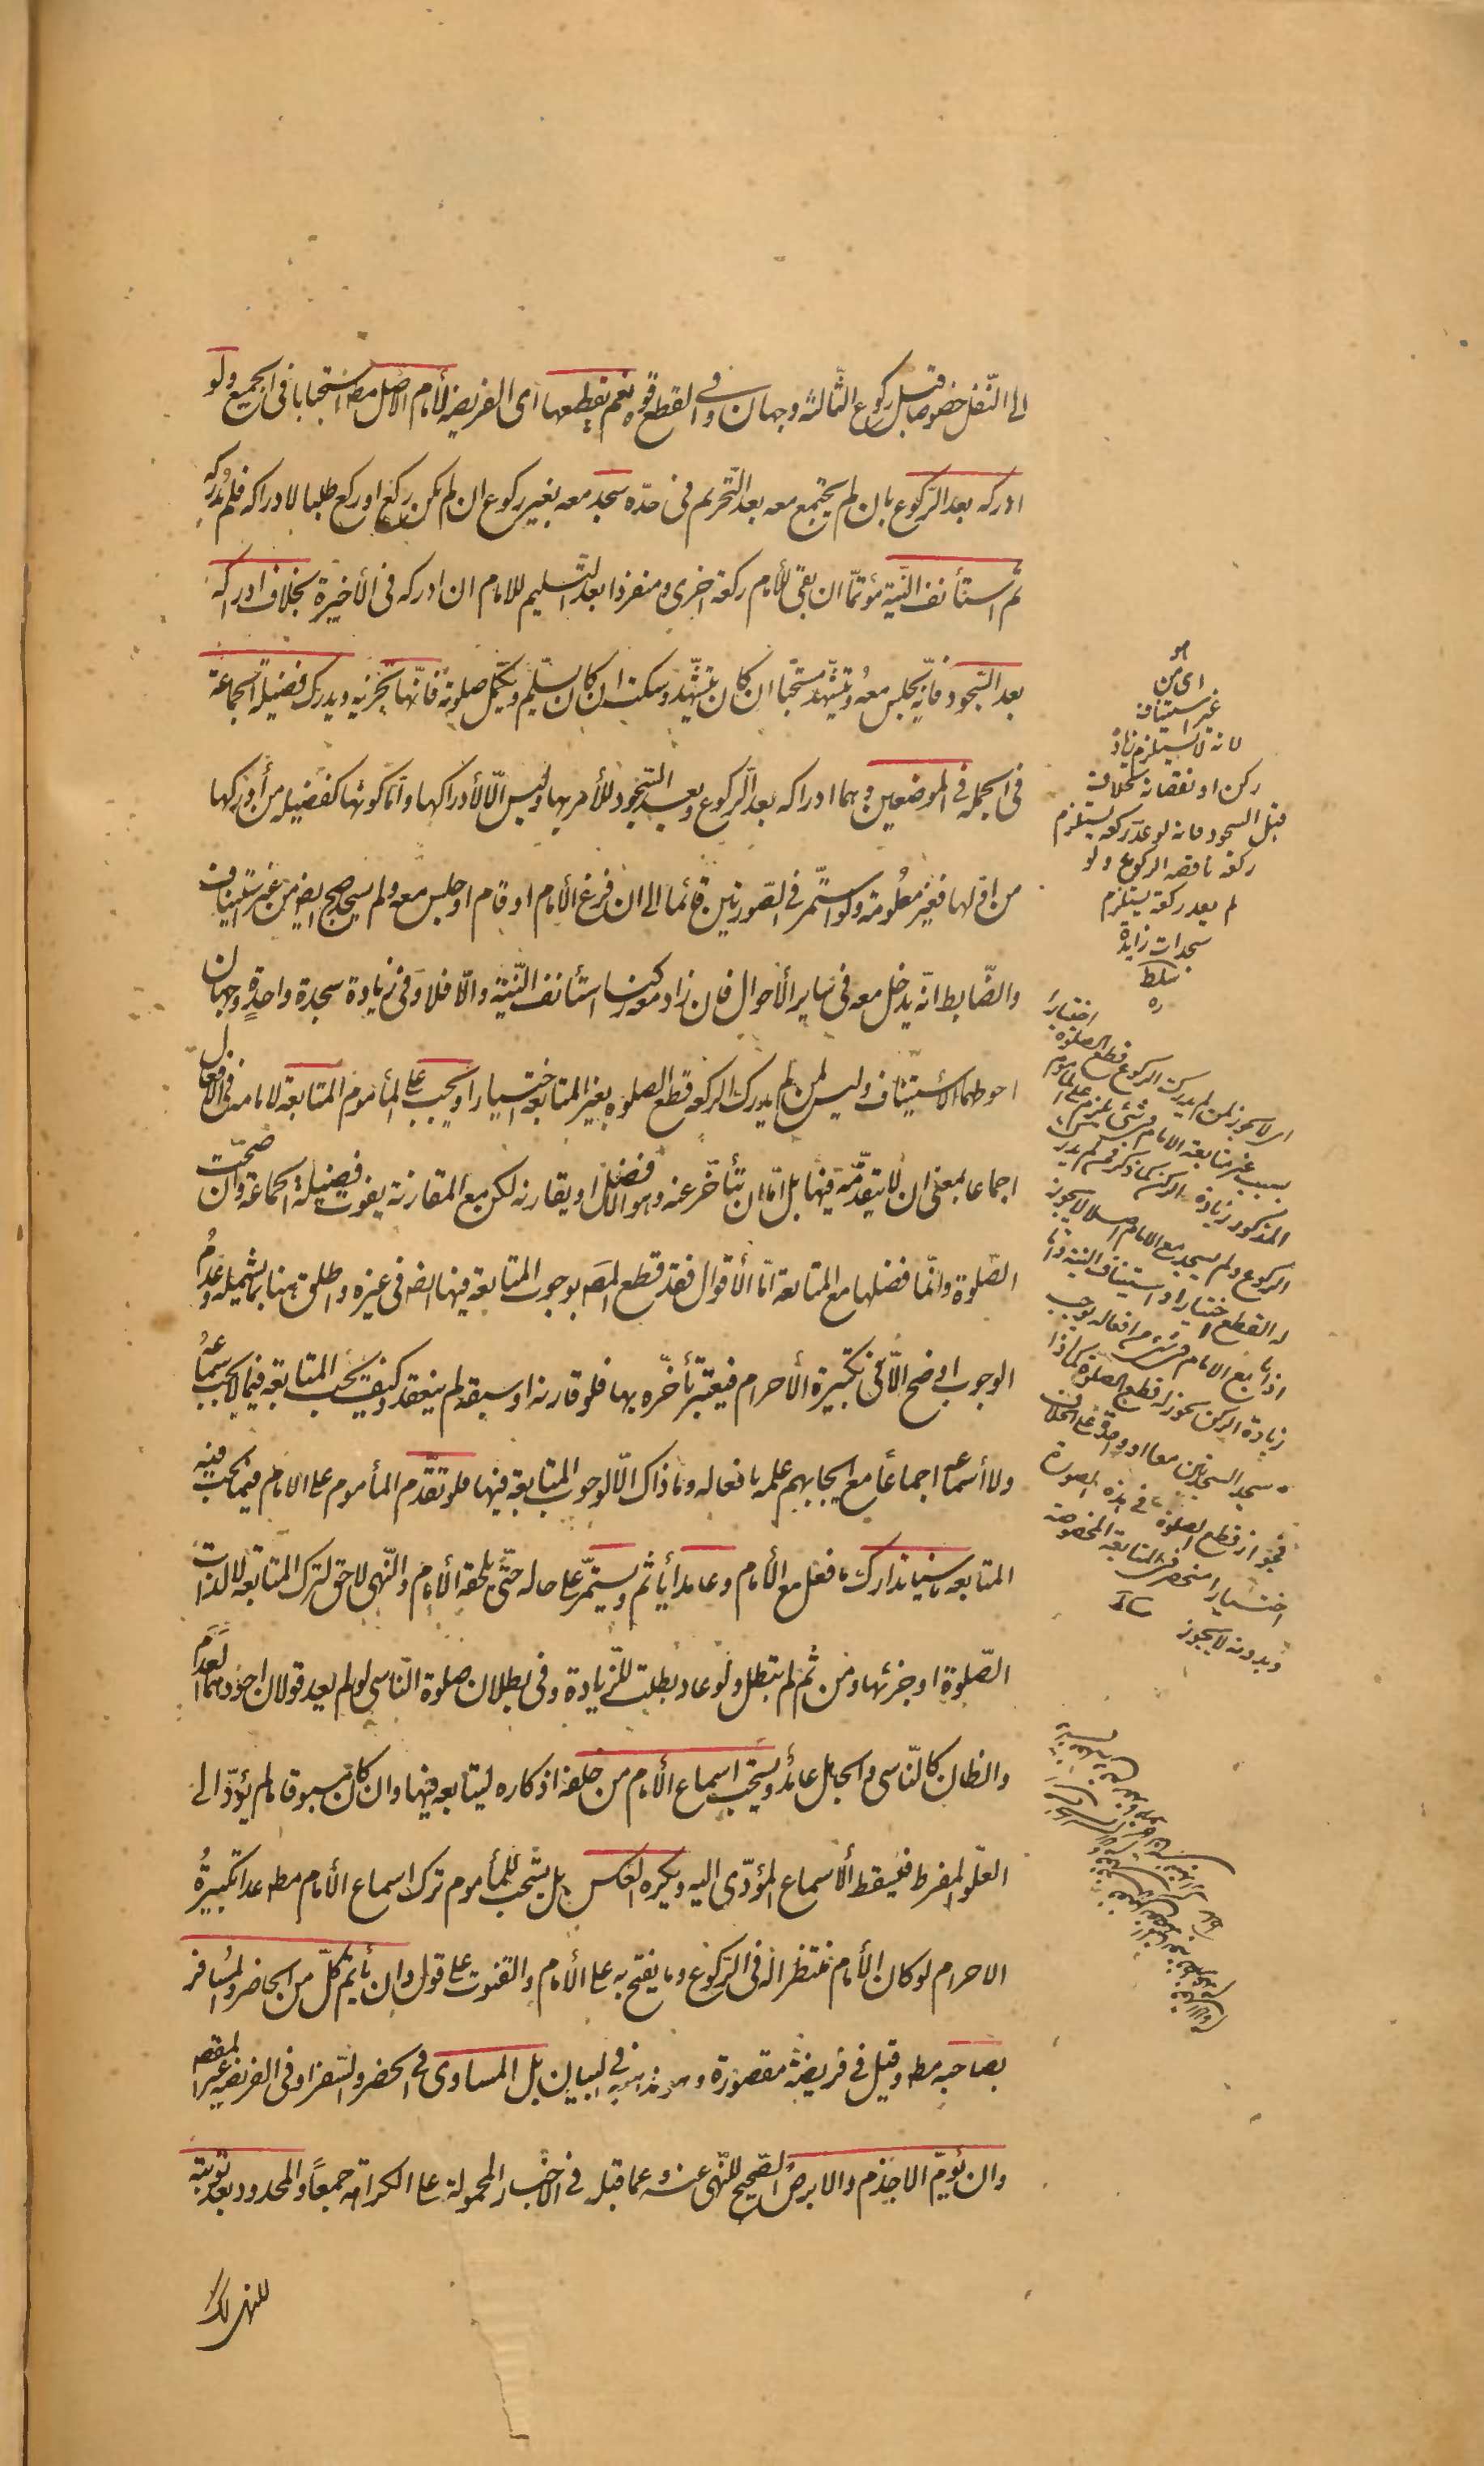 الى النّفل خصوصا قبل ركوع الثّالثة وجهان وفى القطع قوّه نعم يقطعها اى الفريضة لأمام الاصل مط استحبابا فى الجميع ولو
ادركه بعد الرّكوع بان لم يجتمع معه بعد التّحريم فى حدّه سجد معه بغير ركوع ان لم يكن ركع او ركع طلبا لادراكه فلم يدركه
ثم استأنف النّية مؤتمّا ان بقى للأمام ركعة اخرى ومنفردا بعد التّسليم للامام ان ادركه فى الأخيرة بخلاف ادراكه
بعد السّجود فانّه يجلس معه ويتشهّد مستحبّا ان كان يتشهّد وسكت ان كان يسلّم ويكمّل صلوته فانّها تجزيه ويدرك فضيلة الجماعة
فى الجملة فى الموضعين وهما ادراكه بعد الرّكوع وبعد السّجود للأمر بها وليس الّا لأدراكها وامّا كونها كفضيلة من أدركها
من اوّلها فغير معلومة ولو استمرّ فى الصّورتين قائما الى ان فرغ الأمام او قام او جلس معه ولم يسجد صحّ ايض من غير استيناف
والضّابط انّه يدخل معه فى ساير الأحوال فان زاد معه ركنا استأنف النّية والّا فلا وفى زيادة سجدة واحدة وجهان
احوطهما الأستيناف وليس لمن لم يدرك الركعة قطع الصلوة بغير المتابعة اختيارا ويجب على المأموم المتابعة لامامه فى الأفعال
اجماعا بمعنى ان لا يتقدّمه فيها بل امّا ان يتأخّر عنه وهو الأفضل او يقارنه لكن مع المقارنة يفوت فضيلة الجماعة وان صحّت
الصّلوة وانّما فضلها مع المتابعة امّا الأقوال فقد قطع المصَ بوجوب المتابعة فيها ايض فى غيره واطلق هنا بما يشمله وعدمُ
الوجوب اوضح الّا فى تكبيرة الأحرام فيعتبر تأخّره بها فلو قارنه او سبقه لم ينعقد وكيف يجب المتابعة فيما لا يجب سماعه
ولا أسماعه اجماعاً مع ايجابهم علمه بافعاله وما ذاك الّا لوجوب المتابعة فيها فلو تقدّم المأموم على الامام فيما يجب فيه
المتابعة ناسيا تدارك ما فعل مع الأمام وعامدا يأثم ويستمرّ على حاله حتّى يلحقه الأمام والنّهى لاحق لترك المتابعة لا لذات
الصّلوة او جزئها ومن ثم لم تبطل ولو عاد بطلت للزّيادة وفى بطلان صلوة النّاسى لو لم يعد قولان اجودهما العدم
والظان كالنّاسى والجاهل عامد ويستحبّ اسماع الأمام من خلفه اذكاره ليتابعه فيها وان كان مسبوقا ما لم يؤدّ الى
العلّو المفرط فيسقط الأسماع المؤدّى اليه ويكره العكس بل يستحبّ للمأموم ترك اسماع الأمام مطه عدا تكبيرةُ
الاحرام لو كان الأمام منتظرا له فى الرّكوع وما يفتح به على الأمام والقنوت على قول وان يأتمّ كلّ من الحاضر والمسافر
بصاحبه مطه وقيل فى فريضة مقصورة وهو مذهبه فى البيان بل المساوى فى الحضر والسّفر او فى الفريضة غير المقصورة
وان يؤمّ الاجذم والابرصُ الصّحيح للنّهى عنه وعما قبله فى الأخبار المحمولة على الكراهة جمعاً والمحدود بعد توبته
للنهى كذلك
اى من
غير استيناف
لانه لا يستلزم زيادة
ركن او نقصانه بخلاف
قبل السجود فانه لو عدّ ركعة يستلزم
ركعة ناقصة الركوع ولو
لم يعد ركعة يستلزم
سجدات زايدة
سلط
ره
اى لا يجوز لمن لم يدرك الركوع قطع الصلوة اختياراً
بسبب غير متابعة الامام فى شئ يلزم على المأموم
المذكور زيادة الركن كما ذكر فمن لم يدرك
الركوع ولم يسجد مع الامام اصلا لا يجوز
له القطع اختيارا واستيناف النية وامّا
اذا تابع الامام فى شئ من افعاله يوجب
زيادة الركن يجوز له قطع الصلوة كما اذا
سجد السجدتين معا او واحدة على الخلاف
فجواز قطع الصلوة فى هذه الصورة
اختيارا منحصر فى المتابعة المخصوصة
وبدونه لا يجوز